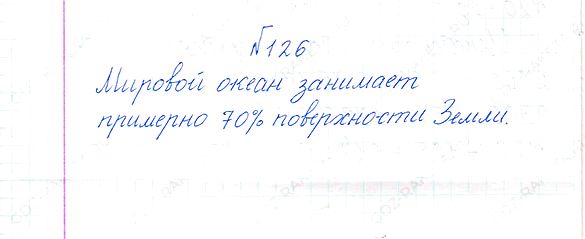 №126
Мировой океан занимает
примерно 70% поверхности Земли.